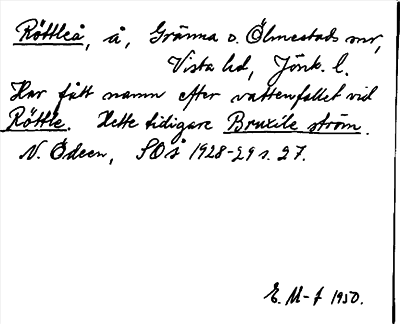 Röttleå, å, Gränna o. Ölmestads snr,
Vista hd, Jönk. l.
Har fått namn efter vattenfallet vid
Röttle. Hette tidigare Bruxile ström.
N. Ödeen, SOÅ 1928-29 s. 27.
E. M-f 1950.